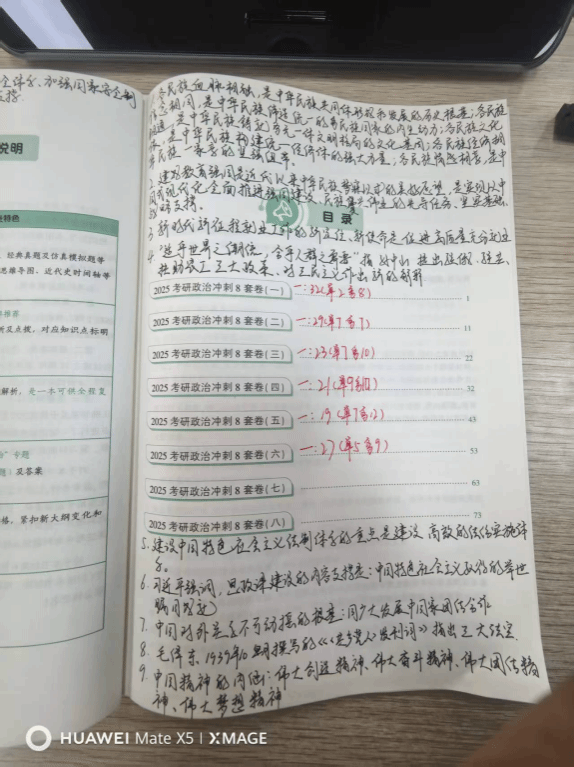 全体系、加强国家安全制
支撑。
说明
点特色
经典真题及仿真模拟题等
思维导图、近代史时间轴等
容推荐
析及点拨,对应知识点标明
解析,是一本可供全程复
"专题
题)及答案
格,紧扣新大纲变化和
1. 各民族血脉相融,是中华民族共同体形成和发展的历史根基;各民族
信念相同,是中华民族缔造统一的多民族国家的内生动力;各民族文化
相通,是中华民族铸就多元一体文明格局的文化基因;各民族经济相
依,是中华民族构建统一经济体的强大力量;各民族情感相亲,是中
华民族一家亲的坚强纽带。
2. 建成教育强国是近代以来中华民族梦寐以求的美好愿望,是实现以中
国式现代化全面推进强国建设、民族复兴伟业的先导任务、坚实基础、
战略支撑。
目录
3. 新时代新征程
4. "适乎世界之潮流,合乎人群之需要"指孙中山提出联俄、联共、
扶助农工三大政策、对三民主义作出新的解释
2025 考研政治冲刺 8 套卷(一) 一:32(单2多8) 1
2025 考研政治冲刺 8 套卷(二) 一:29(单7多7) 11
2025 考研政治冲刺 8 套卷(三) 一:23(单7多10) 22
2025 考研政治冲刺 8 套卷(四) 一:21 32
2025 考研政治冲刺 8 套卷(五) 一:19(单7多12) 43
2025 考研政治冲刺 8 套卷(六) 一:27(单5多9) 53
2025 考研政治冲刺 8 套卷(七) 63
2025 考研政治冲刺 8 套卷(八) 73
5. 建设中国特色社会主义法制体系的重点是建设高效的法治实施体
系。
6. 习近平强调,思政课建设的内容支撑是:中国特色社会主义取得的举世
瞩目成就
7. 中国对外是不可动摇的根基:同广大发展中国家团结合作
8. 毛泽东1939年10月撰写的《<共产党人>发刊词》指出三大法宝
9. 中国精神的内涵:伟大创造精神、伟大奋斗精神、伟大团结精
神、伟大梦想精神
HUAWEI Mate X5 | XMAGE